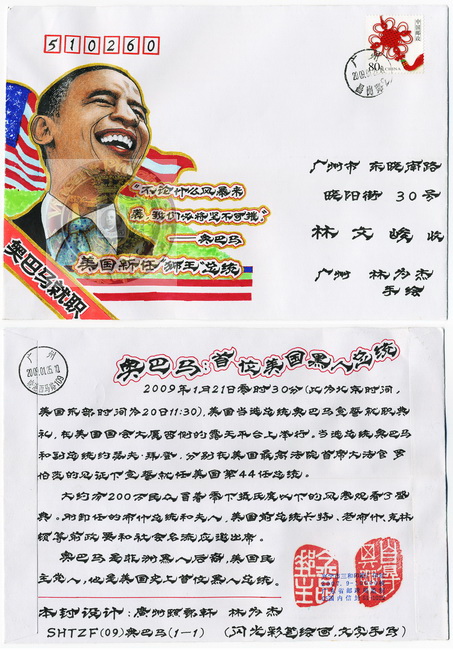 510260
中国邮政
80分
广州
"不论什么风暴来
袭,我们必将坚不可摧"
——奥巴马
美国新任"狮王"总统
奥巴马就职
广州市 东晓南路
晓阳街 30号
林文峻 收
广州 林为杰
手绘
广州
2009.01.25.10
奥巴马:首位美国黑人总统
2009年1月21日零时30分(此为北京时间,
美国东部时间为20日11:30),美国当选总统奥巴马宣誓就职典
礼,在美国国会大厦西侧的露天平台上举行。当选总统奥巴马
和副总统约瑟夫·拜登,分别在美国最高法院首席大法官罗
伯茨的见证下宣誓就任美国第44任总统。
大约有200万民众冒着零下摄氏度以下的风寒观看了盛
典。刚卸任的布什总统和夫人,美国前总统卡特、老布什、克林
顿等前政要和社会名流应邀出席。
奥巴马是非洲黑人后裔,美国民
主党人,也是美国史上首位黑人总统。
本封设计:广州颐郵軒 林为杰
SHTZF(09)奥巴马(1-1) (闪光彩笔绘画,文字手写)